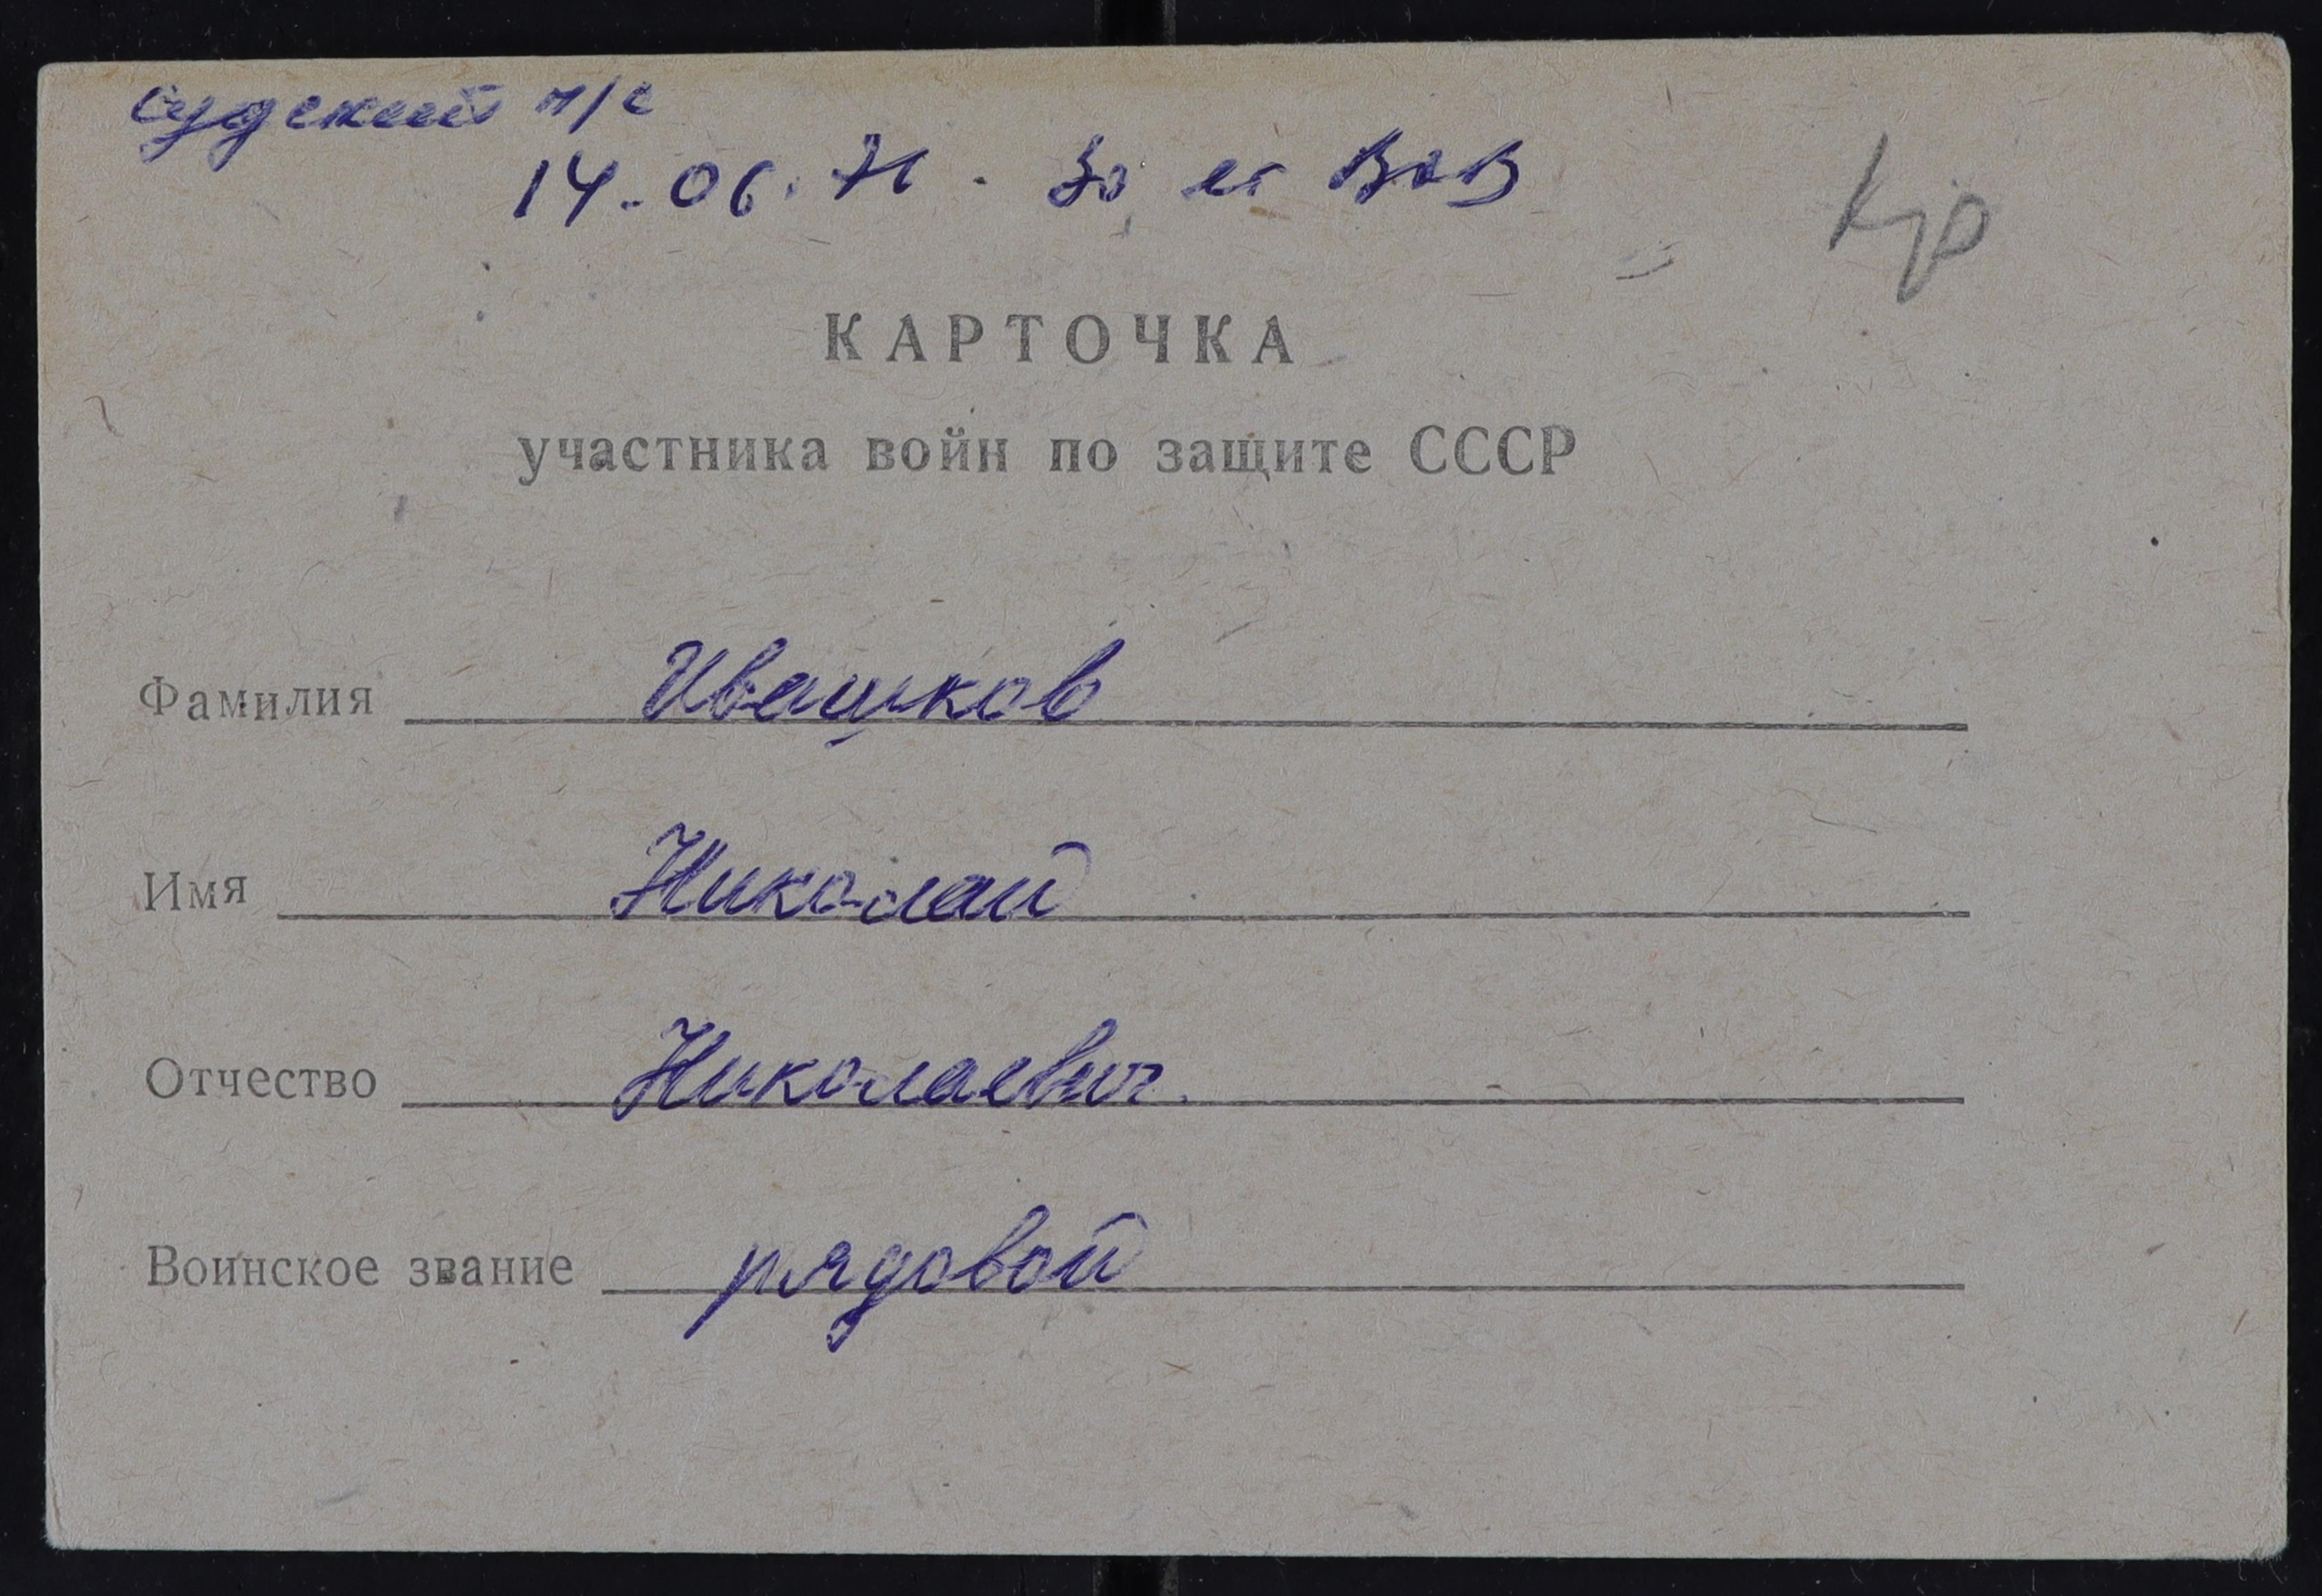 Судский п/с
14.06.71. 30 лет ВОВ
Кр
КАРТОЧКА
участника войн по защите СССР
Фамилия Ивашков
Имя Николай
Отчество Николаевич.
Воинское звание рядовой